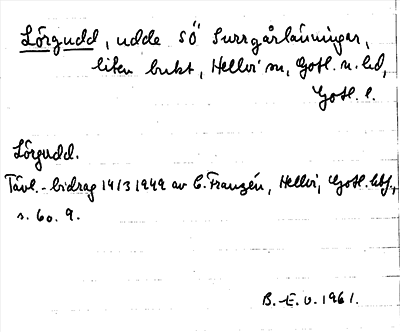 Lörgudd, udde SÖ Surrgårläuningar,
liten bukt, Hellvi sn, Gotl. n. hd,
Gotl. l.
Lörgudd.
Tävl.-bidrag 14/3 1949 av C. Franzén, Hellvi, Gotl.
s. 60. 9.
B.-E. O. 1961.